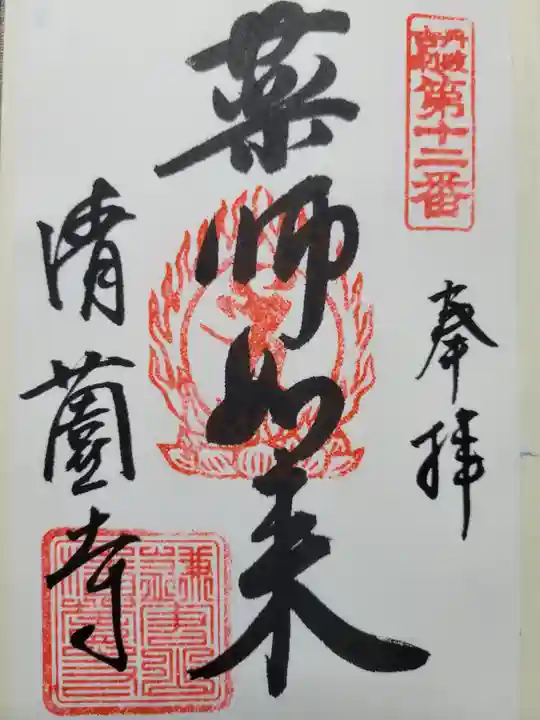 丹波
古刹
第十二番
奉拝
薬師如来
清薗寺